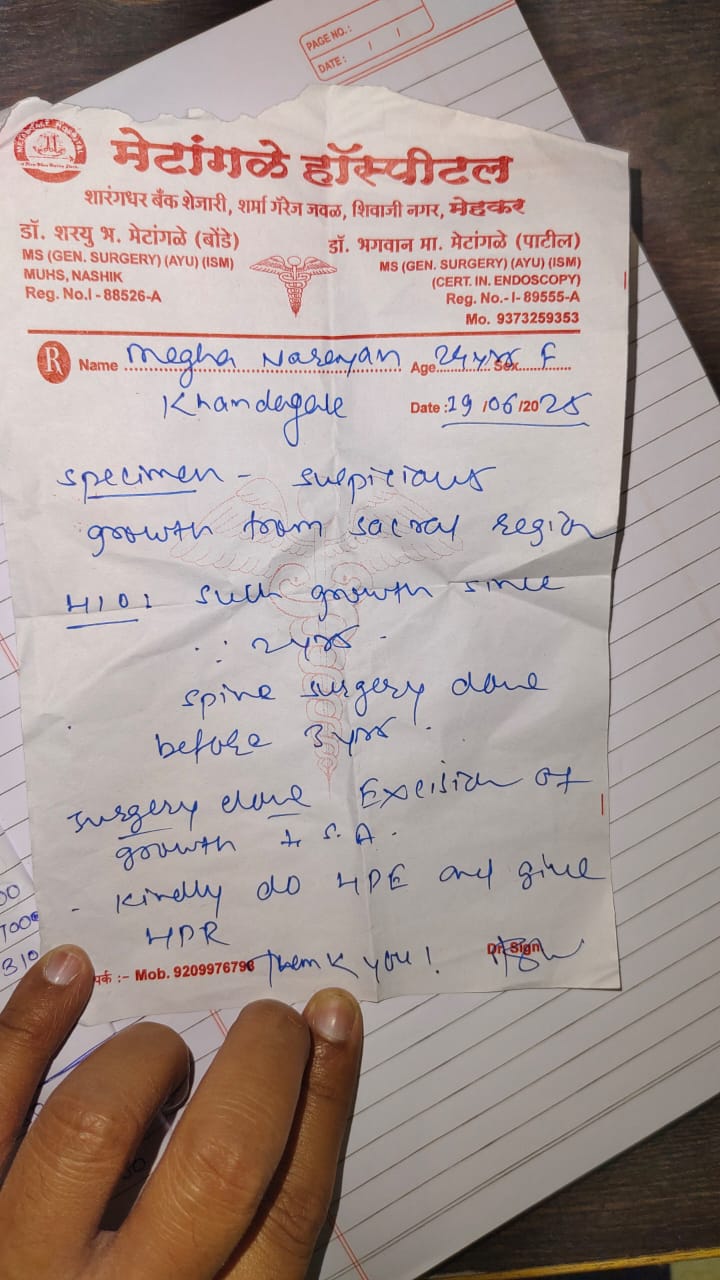 PAGE NO.:
DATE: / /
मेटांगळे हॉस्पीटल
शारंगधर बँक शेजारी, शर्मा गॅरेज जवळ, शिवाजी नगर, मेहकर
डॉ. शरयु भ. मेटांगळे (बोंडे)
MS (GEN. SURGERY) (AYU) (ISM)
MUHS, NASHIK
Reg. No.I - 88526-A
डॉ. भगवान मा. मेटांगळे (पाटील)
MS (GEN. SURGERY) (AYU) (ISM)
(CERT. IN. ENDOSCOPY)
Reg. No.- I- 89555-A
Mo. 9373259353
R Name Megha Narayan Age 24 yrs Sex F
Khandagale Date : 19 /06 /2025
specimen - suspicious
growth from sacral region
H/O : such growth since
2 yrs .
spine surgery done
before 3 yrs .
surgery done Excision of
growth S. A.
- Kindly do HPE and give
HPR
Thank you !
पर्क :- Mob. 9209976796 Dr. Sign